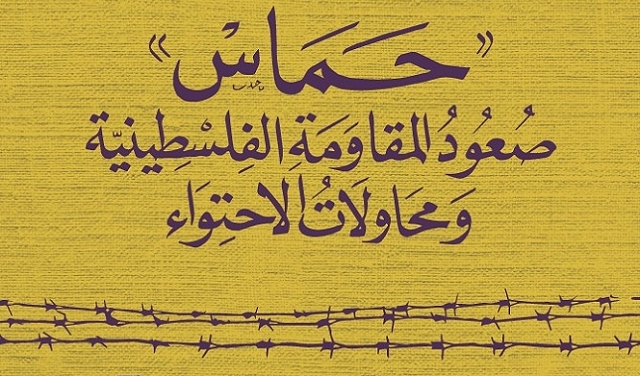 «حَمَاسْ»
صُعُودُ المقاوَمَةِ الفِلسْطِينِيّة
وَمحَاولَاتُ الاحتِوَاء